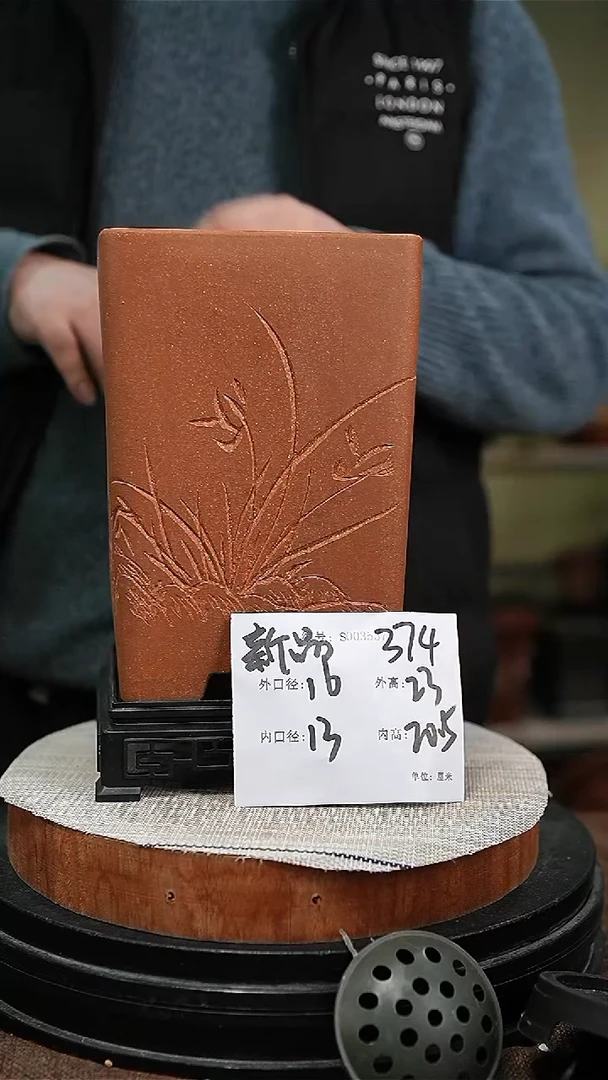 SINCE 1997
·PARIS·
LONDON
新品 号: S00355 374
外口径:16 外高:23
内口径:13 内高:20.5
单位: 厘米